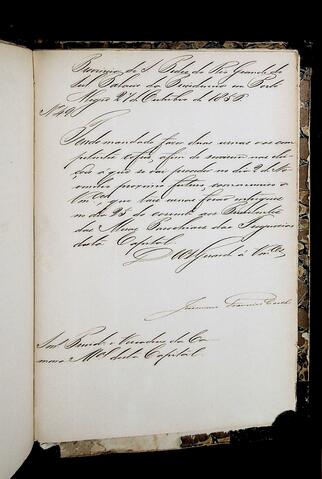 Provincia de S. Pedro do Rio Grande do
Sul Palacio da Presidencia em Porto
Alegre 27 de Outubro de 1856
Nº 49
Tendo mandado fazer duas urnas com
petente afim de
dição a que se vai proceder no dia 2 de No
vembro proximo futuro, communico a
VmCes que taes urnas forão entregues
no dia 23 do corrente aos Presidentes
das Mezas Parochiaes das Freguezias
desta Capital.
Deos Guarde a VmCes
Snrs Presidte e Vereadores da Ca
mara Mal desta Capital.